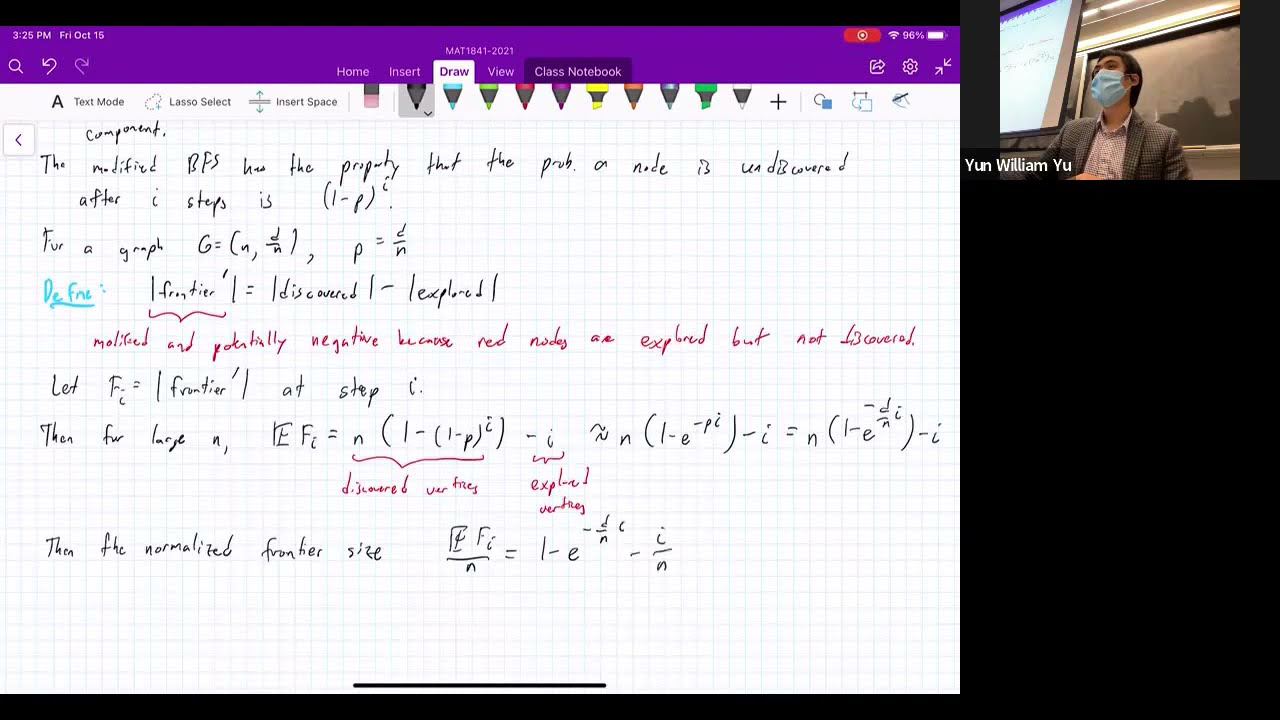 3:25 PM Fri Oct 15
96%
MAT1841-2021
Home Insert Draw View Class Notebook
Text Mode Lasso Select Insert Space
component.
The modified BFS has the property that the prob. a node is undiscovered
after i steps is (1-p)^i.
For a graph G=(n, d/n), p = d/n
Define: |frontier'| = |discovered| - |explored|
modified and potentially negative because red nodes are explored but not discovered.
Let F_i = |frontier'| at step i.
Then for large n, 𝔼 F_i = n (1-(1-p)^i) - i ≈ n (1-e^{-pi}) - i = n (1-e^{-d/n i}) - i
discovered vertices explored vertices
Then the normalized frontier size 𝔼 F_i / n = 1 - e^{-d/n i} - i/n
Yun William Yu